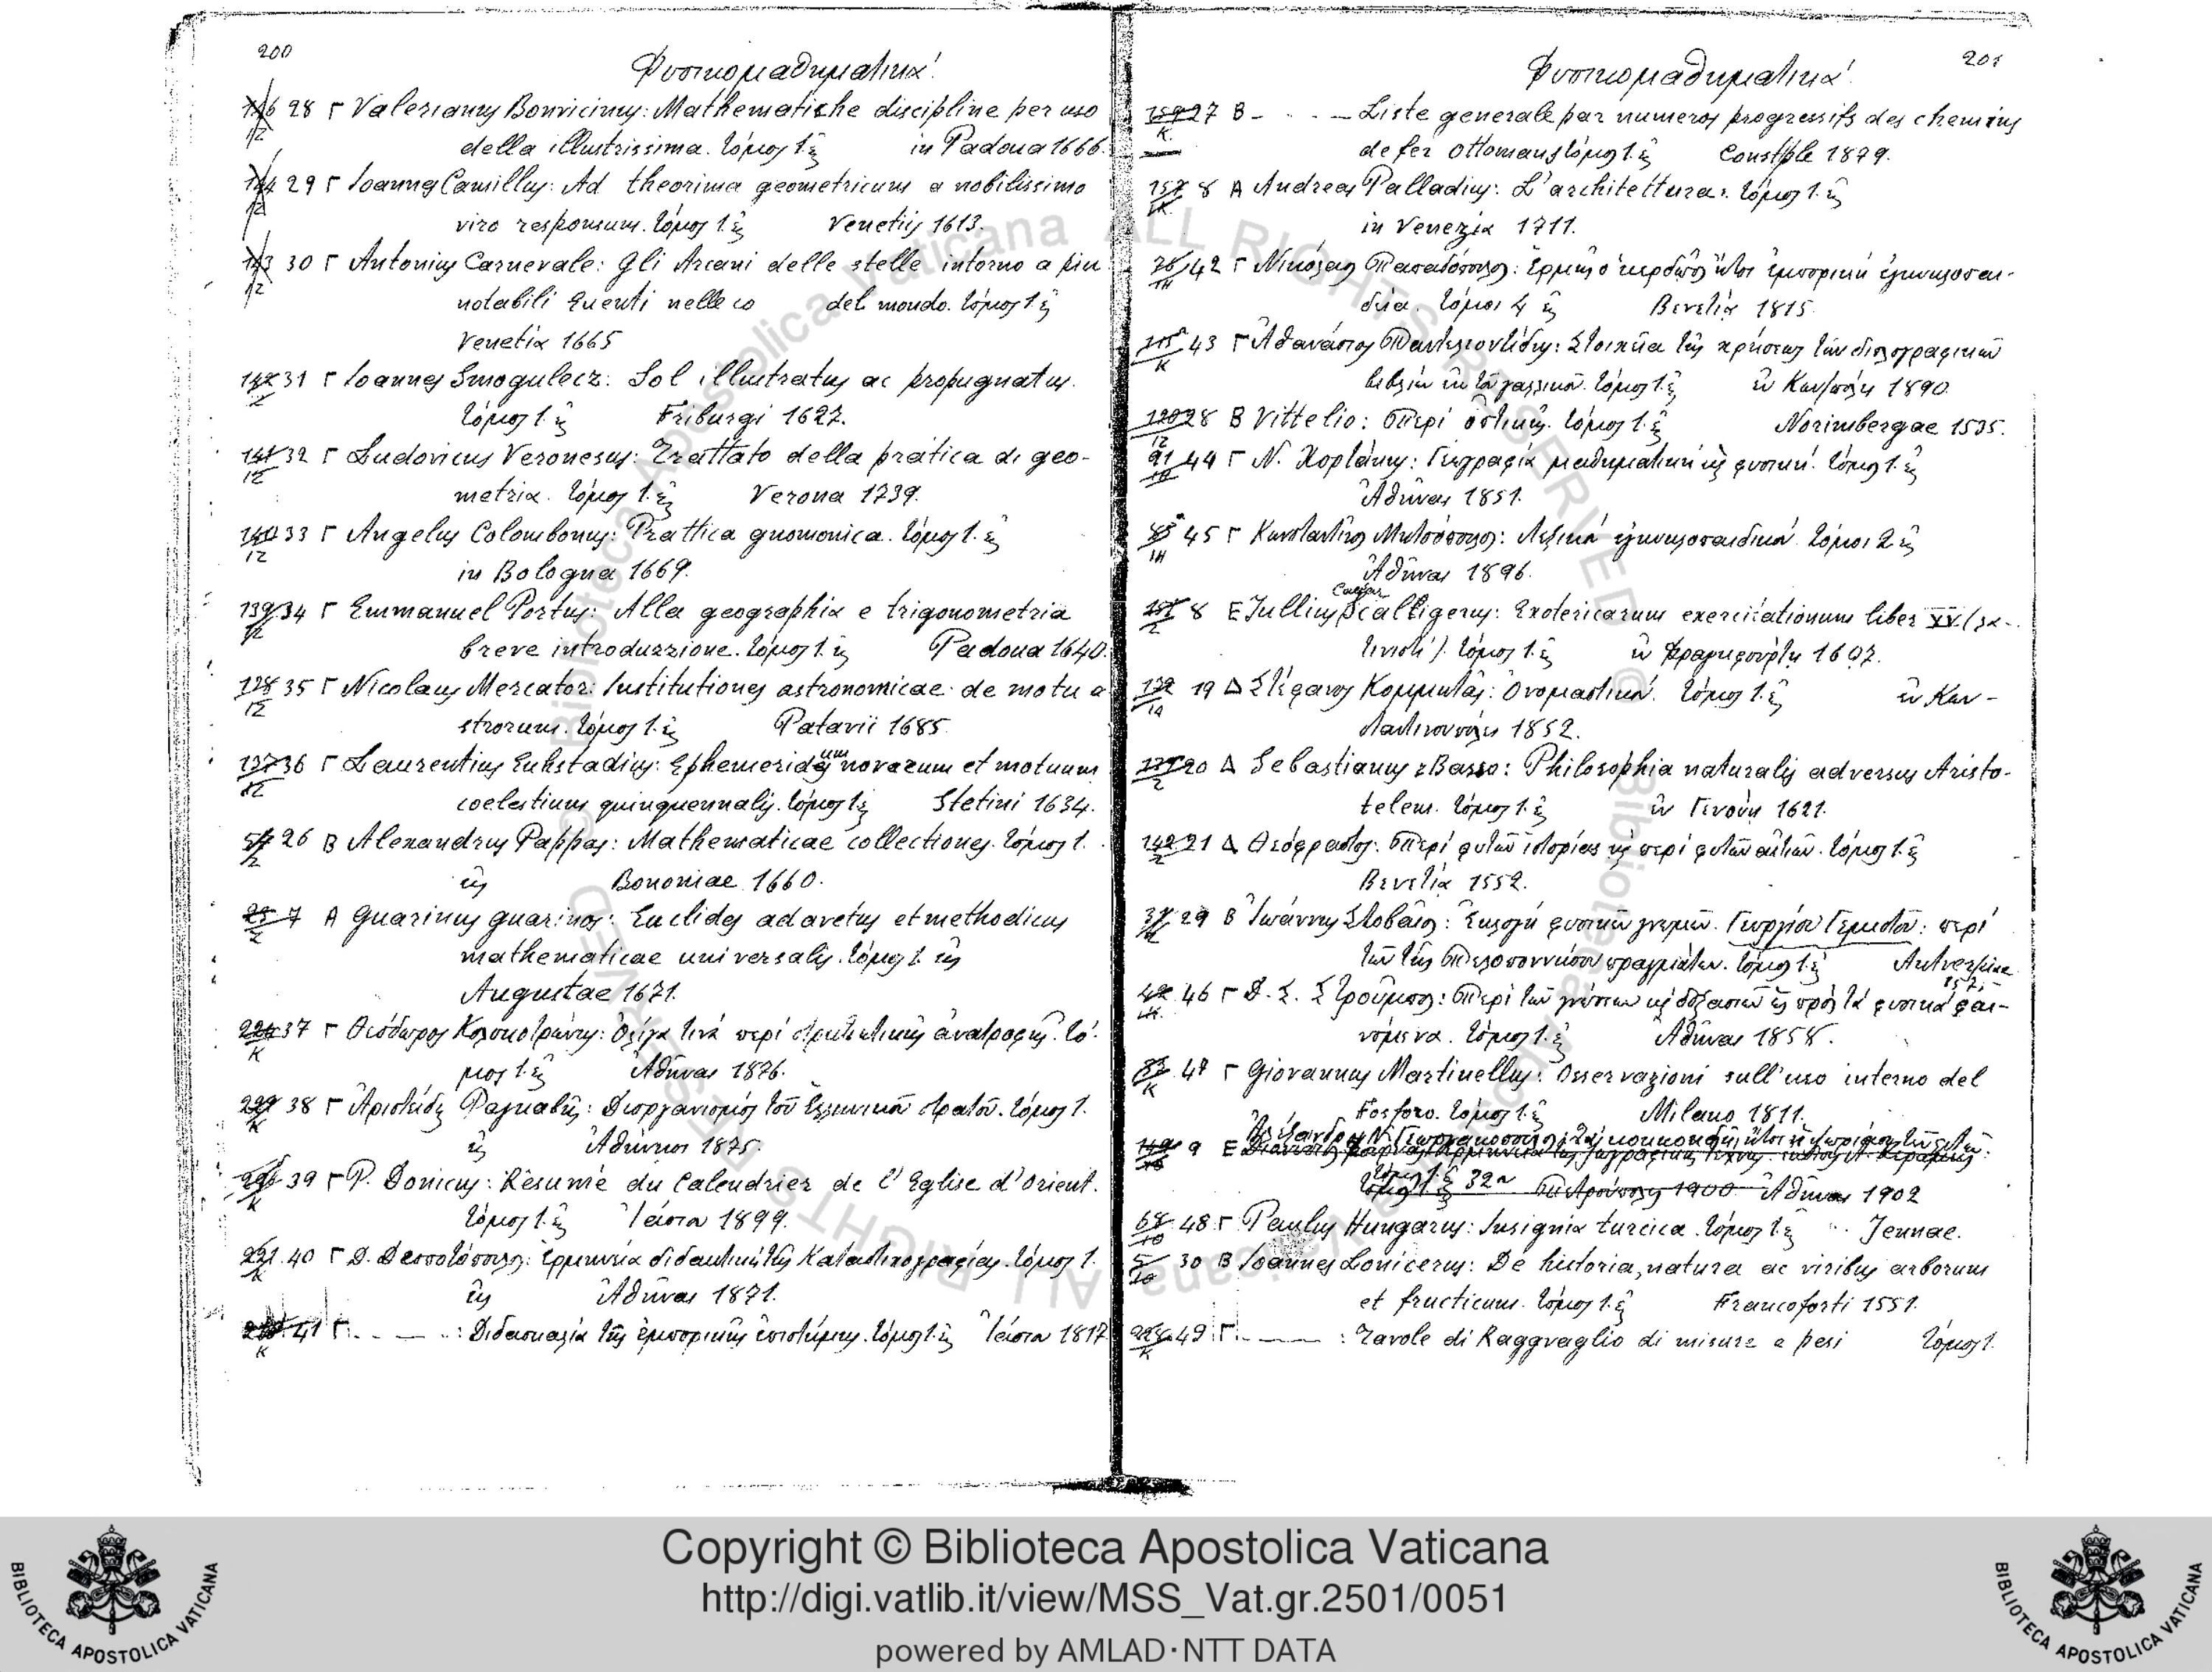 200
Φυσικομαθηματικά
28 Γ Valerianus Bonvicinus: Mathematiche discipline per uso
della illustrissima. τόμος 1. in Padoua 1666.
29 Γ Ioannes Camillus: Ad theorima geometricum a nobilissimo
viro responsum. τόμος 1. Venetiis 1613.
30 Γ Antonius Carnevale: Gli Arcani delle stelle intorno a piu
notabili euenti nelle co del mondo. τόμος 1.
Venetia 1665
31 Γ Ioannes Smogulecz: Sol illustratus ac propugnatus.
τόμος 1. Friburgi 1627.
32 Γ Ludovicus Veronesus: Trattato della pratica di geo-
metria. τόμος 1. Verona 1739.
33 Γ Angelus Colombonus: Prattica gnomonica. τόμος 1.
in Bologna 1669.
34 Γ Emmanuel Portus: Alla geographia e trigonometria
breve introduzzione. τόμος 1. Padoua 1640.
35 Γ Nicolaus Mercator: Institutiones astronomicae de motu a
strorum. τόμος 1. Patavii 1685.
36 Γ Laurentius Euhstadius: Ephemeridum novarum et motuum
coelestium quinquennalis. τόμος 1. Stetini 1634.
26 B Alexandrus Pappas: Mathematicae collectiones. τόμος 1.
Bononiae 1660.
7 A Guarinus guarinos: Euclides adavetus et methodicus
mathematicae universalis. τόμος 1.
Augustae 1671.
37 Γ Θεόδωρος Κολοκοτρώνης: Ὀλίγα τινά περί στρατιωτικῆς ἀνατροφῆς. τό-
μος 1. Ἀθῆναι 1876.
38 Γ Ἀριστείδης Ραγκαβῆς: Διοργανισμός τοῦ ἑλληνικοῦ στρατοῦ. τόμος 1.
Ἀθῆναι 1875.
39 Γ P. Donicus: Résumé du Calendrier de l'Eglise d'Orient.
τόμος 1. 1899.
40 Γ Δ. Δεσποτόπουλος: Ἑρμηνεία διδακτική τῆς Καταστιχογραφίας. τόμος 1.
Ἀθῆναι 1871.
41 Γ. — : Διδασκαλία τῆς ἐμπορικῆς ἐπιστήμης. τόμος 1. 1817
201
Φυσικομαθηματικά.
27 B - - - Liste generale par numeros progressifs des chemins
de fer Ottomans τόμος 1. Constple 1879.
8 A Andreas Palladius: L'architettura. τόμος 1.
in Venezia 1711.
42 Γ Νικόλαος Παπαδόπουλος: Ἑρμῆς ὁ κερδῷος ἤτοι ἐμπορική ἐγκυκλοπαι-
δεία. τόμοι 4 Βενετία 1815
43 Γ Ἀθανάσιος Παντελεοντίδης: Στοιχεῖα τῆς χρήσεως τῶν διπλογραφικῶν
βιβλίων ἐκ τοῦ γαλλικοῦ. τόμος 1. ἐν Κων/πόλει 1890.
28 B Vittelio: Περί ὀπτικῆς. τόμος 1. Norimbergae 1535.
44 Γ Ν. Χορτάκης: Γεωγραφία μαθηματική καί φυσική. τόμος 1.
Ἀθῆναι 1851.
45 Γ Κωνσταντῖνος Μητσόπουλος: Λεξικά ἐγκυκλοπαιδικά. τόμοι 2
Ἀθῆναι 1896.
Caesar
8 E Jullius Scalligerus: Exotericarum exercitationum liber XV
τόμος 1. ἐν Φραγκφούρτη 1607.
19 Δ Στέφανος Κομμητᾶς: Ὀνομαστικά. τόμος 1. ἐν Κων-
σταντινουπόλει 1852.
20 Δ Sebastianus Basso: Philosophia naturalis adversus Aristo-
telem. τόμος 1. ἐν Γενούη 1621.
21 Δ Θεόφραστος: Περί φυτῶν ἱστορίας καί περί φυτῶν αἰτιῶν. τόμος 1.
Βενετία 1552.
29 B Ἰωάννης Στοβαῖος: Ἐκλογή φυσικῶν γνωμῶν. Γεωργίου Γεμιστοῦ: περί
τῶν τῆς Πελοποννήσου πραγμάτων. τόμος 1. Antverpiae
46 Γ Δ. Σ. Στροῦμπος: Περί τῶν γνώσεων καί δοξασιῶν πρός τά φυσικά φαι-
νόμενα. τόμος 1. Ἀθῆναι 1858.
47 Γ Giovannus Martinellus: Osservazioni sull'uso interno del
Fosforo. τόμος 1. Milano 1811.
9 E
τόμος 1. 32 1900 Ἀθῆναι 1902
48 Γ Paulus Hungarus: Insignia turcica. τόμος 1. Jennae.
30 B Ioannes Lonicerus: De historia, natura ac viribus arborum
et fructicum. τόμος 1. Francoforti 1551.
49 Γ. — : Tavole di Raggvaglio di misure e pesi τόμος 1.
Copyright © Biblioteca Apostolica Vaticana
http://digi.vatlib.it/view/MSS_Vat.gr.2501/0051
powered by AMLAD·NTT DATA
BIBLIOTECA APOSTOLICA VATICANA
BIBLIOTECA APOSTOLICA VATICANA